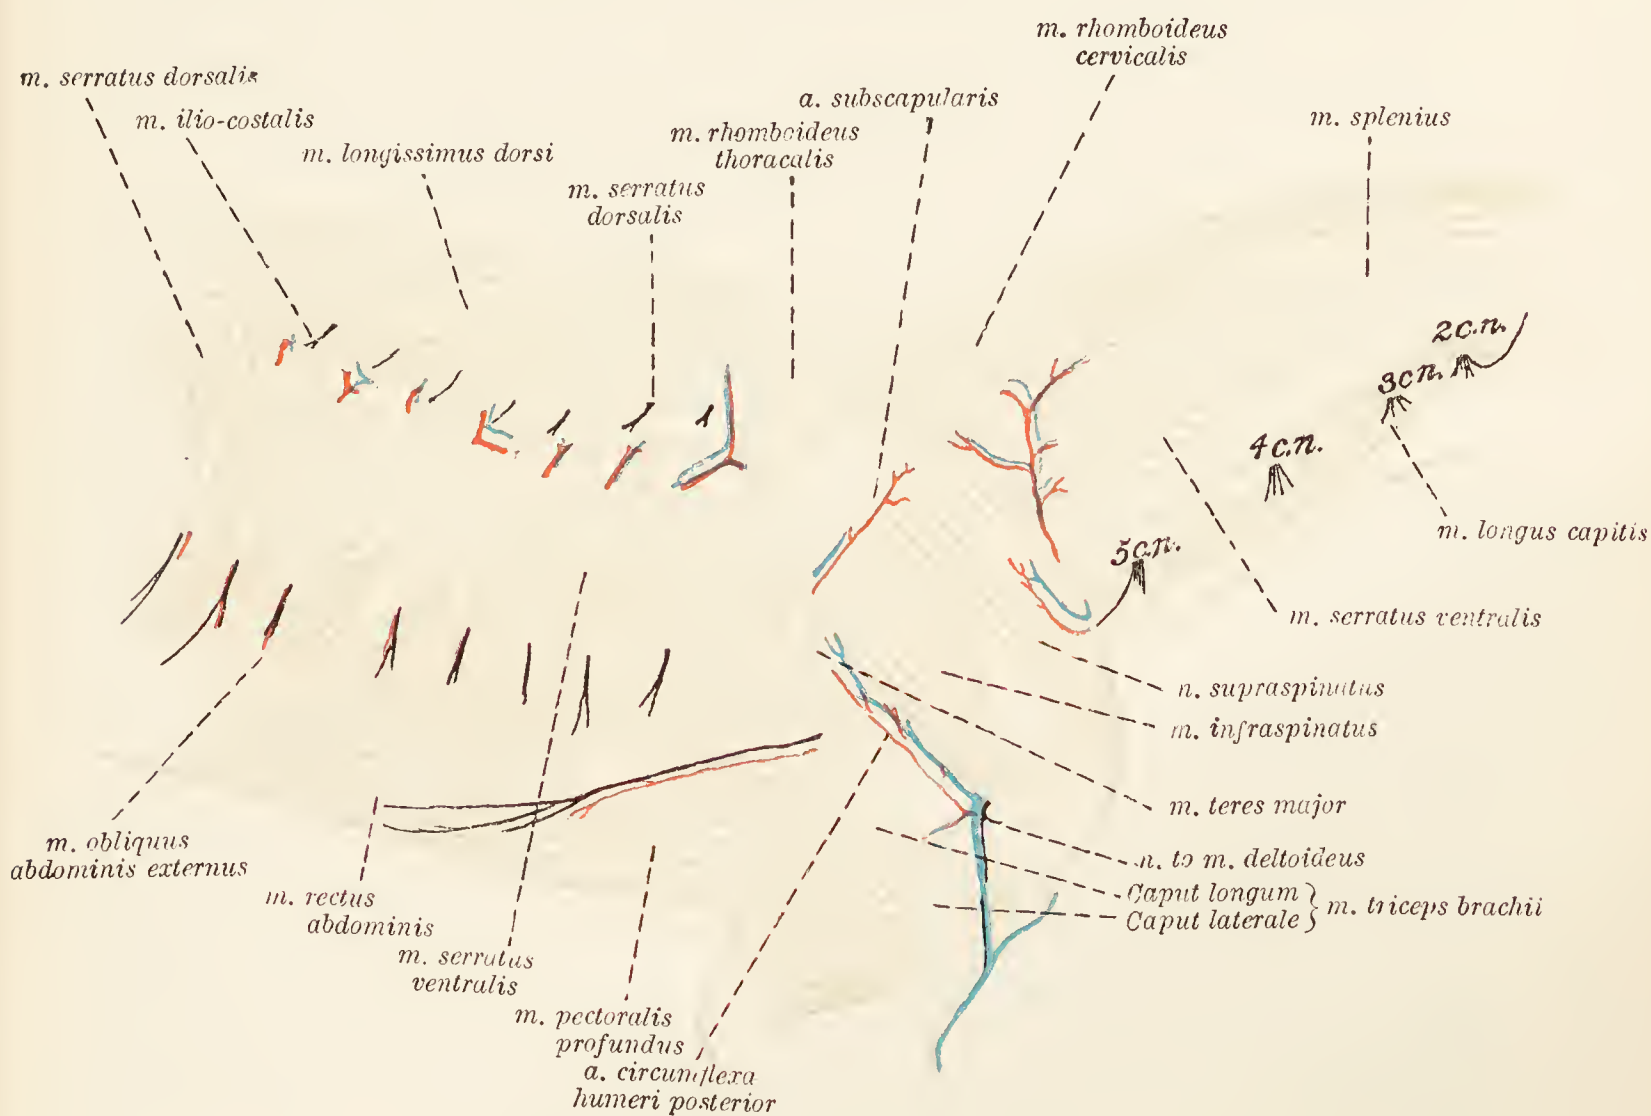 m. rhomboideus
cervicalis
m. serratus dorsalis
m. ilio-costalis
m. longissimus dorsi
m. serratus
dorsalis
m. rhomboideus
thoracalis
a. subscapularis
m. splenius
2c.n.
3c n.
4c.n.
5c.n.
m. longus capitis
m. serratus ventralis
n. supraspinatus
m. infraspinatus
m. teres major
n. to m. deltoideus
Caput longum
Caput laterale
m. triceps brachii
m. obliquus
abdominis externus
m. rectus
abdominis
m. serratus
ventralis
m. pectoralis
profundus
a. circumflexa
humeri posterior